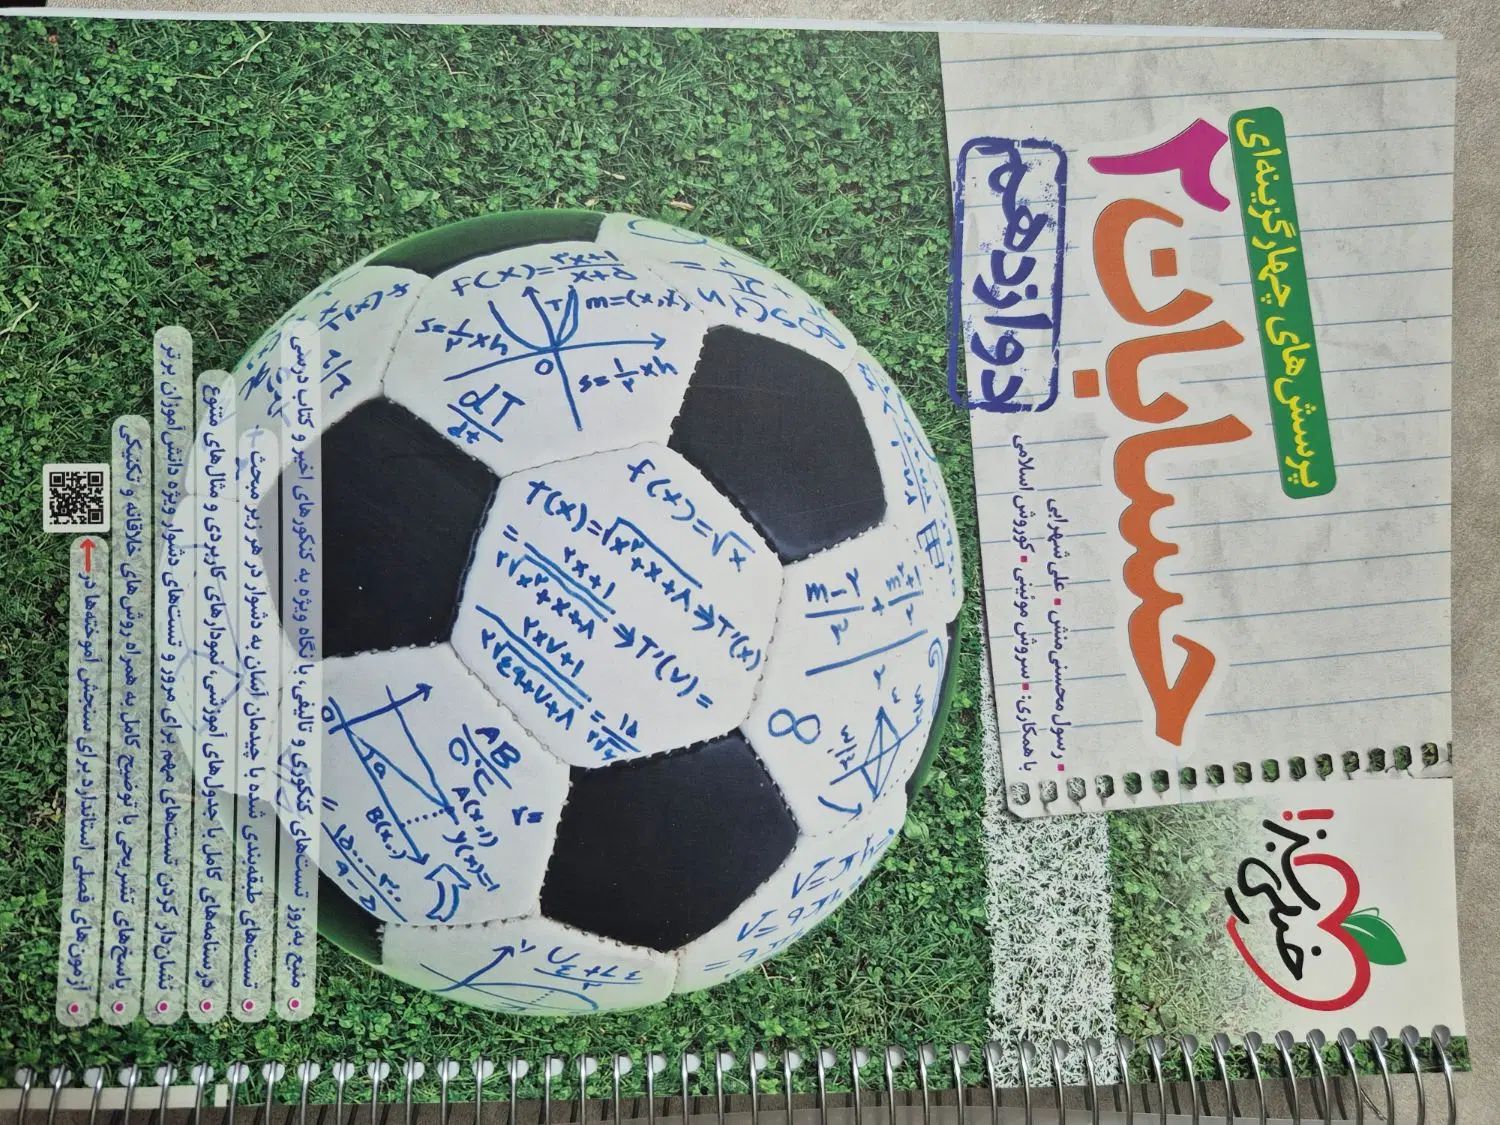 پرسش‌های چهارگزینه‌ای
حسابان ۲
دوازدهم
رسول محسنی‌منش ▪ علی شهرابی
با همکاری: سروش موئینی ▪ کوروش اسلامی
خیلی سبز!
f(x)=۲x+۱/x+۵
m=(x,y)
T
O
s=۱/۲xh
s=۱/۲xh
dT/dt
f(x)=√x
T(x)=√x²+x+۸ ⇒ T'(x)
=۲x+۱/۲√x²+x+۸ ⇒ T'(۷)=
۲x۷+۱/۲√۴۹+۷+۸=۱۵/۲√۶۴
8
AB
A(x,۱)
y(x)=۱
B(x,۰)
منبع به‌روز تست‌های کنکوری و تالیفی، با نگاه ویژه به کنکورهای اخیر و کتاب درسی
تست‌های طبقه‌بندی شده با چیدمان آسان به دشوار در هر زیر مبحث +
درسنامه‌های کامل با جدول‌های آموزشی، نمودارهای کاربردی و مثال‌های متنوع
نشان‌دار کردن تست‌های مهم برای مرور و تست‌های دشوار ویژه دانش‌آموزان برتر
پاسخ‌های تشریحی با توضیح کامل به همراه روش‌های خلاقانه و تکنیکی
آزمون‌های فصلی استاندارد برای سنجش آموخته‌ها در